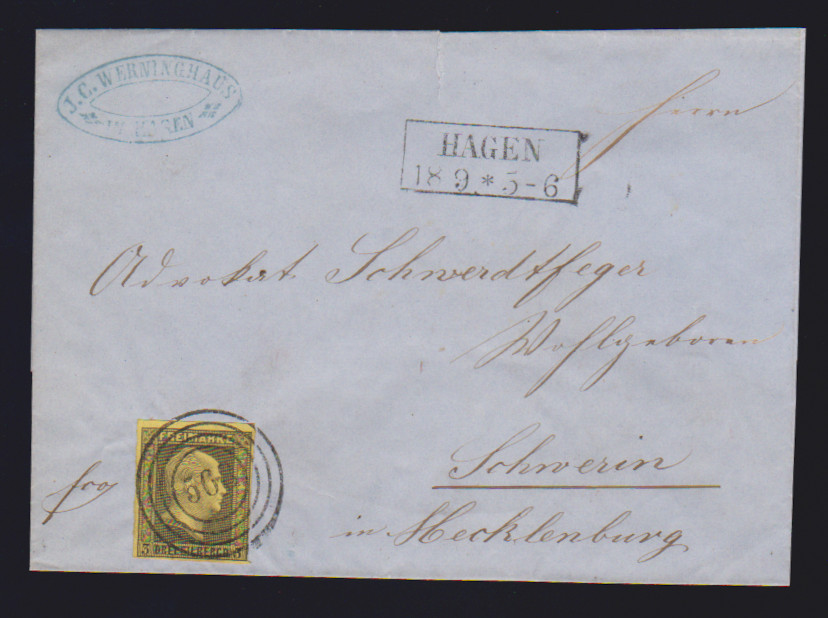 J. C. WERNINGHAUS
IN HAGEN
Herrn
HAGEN
18 9 * 5-6
Advokat Schwerdtfeger
Wohlgeboren
Schwerin
in Mecklenburg
FREIMARKE
3 DREI SILBERGR. 3